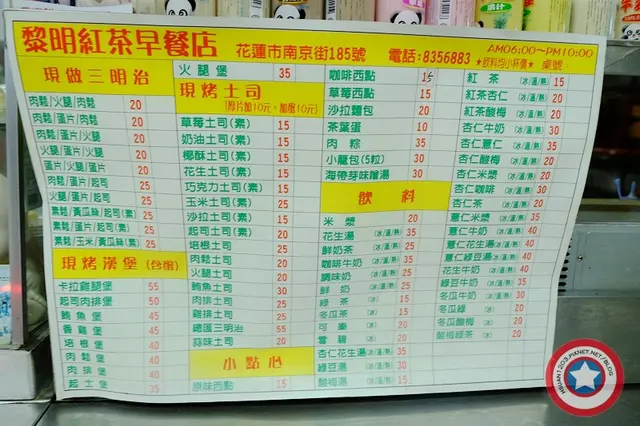 黎明紅茶早餐店 花蓮市南京街185號 電話:8356883 AM06:00~PM10:00
★飲料均小杯價★ 桌號:
現做三明治
肉鬆/火腿/肉鬆 20
肉鬆/蛋片/肉鬆 20
火腿/蛋片/火腿 20
蛋片/火腿/蛋片 20
蛋片/肉鬆/蛋片 20
肉鬆/蛋片/起司 25
火腿/蛋片/起司 25
素鬆/黃瓜絲/起司(素) 25
素鬆/蛋片/黃瓜絲(素) 25
素鬆/玉米/黃瓜絲(素) 25
現烤漢堡
卡拉雞腿堡 55
起司肉排堡 50
鮪魚堡 45
香雞堡 45
培根堡 40
肉鬆堡 40
肉排堡 40
起士堡 35
火腿堡 35
現烤土司
(厚片加10元、加蛋10元)
草莓土司(素) 15
奶油土司(素) 15
椰酥土司(素) 15
花生土司(素) 15
巧克力土司(素) 15
玉米土司(素) 25
沙拉土司(素) 15
起司土司(素) 25
培根土司 25
肉鬆土司 20
火腿土司 20
鮪魚土司 30
肉排土司 25
雞排土司 25
總匯三明治 55
蒜味土司 20
小點心
原味西點 15
咖啡西點 15
草莓西點 15
沙拉麵包 20
茶葉蛋 10
肉粽 35
小籠包(5粒) 30
海帶芽味噌湯 30
飲料
米漿 20
花生湯 (冰|溫|熱) 35
鮮奶茶 (冰|溫|熱) 25
咖啡牛奶 (冰|溫|熱) 25
調味奶 25
鮮奶 (冰) 25
綠茶 (冰) 15
冬瓜茶 (冰) 15
可樂 (冰) 20
雪碧 (冰) 20
杏仁花生湯 (冰|溫|熱) 35
綠豆湯 (冰|溫|熱) 30
酸梅湯 (冰) 15
紅茶 (冰|溫|熱) 15
紅茶杏仁 (冰|溫|熱) 20
紅茶酸梅 (冰|溫|熱) 20
杏仁牛奶 (冰|溫|熱) 30
杏仁薏仁 (冰|溫|熱) 35
杏仁酸梅 (冰|溫|熱) 20
杏仁米漿 (冰|溫|熱) 20
杏仁咖啡 (冰|溫|熱) 30
薏仁米漿 (冰|溫|熱) 35
薏仁牛奶 (冰|溫|熱) 40
薏仁花生湯 (冰|溫|熱) 40
薏仁綠豆湯 (冰|溫|熱) 40
花生牛奶 (冰|溫|熱) 40
綠豆牛奶 (冰) 40
冬瓜牛奶 (冰) 30
冬瓜綠 (冰) 20
冬瓜酸梅 (冰) 20
酸梅綠茶 (冰) 20
HSUAN1203.PIXNET.NET/BLOG